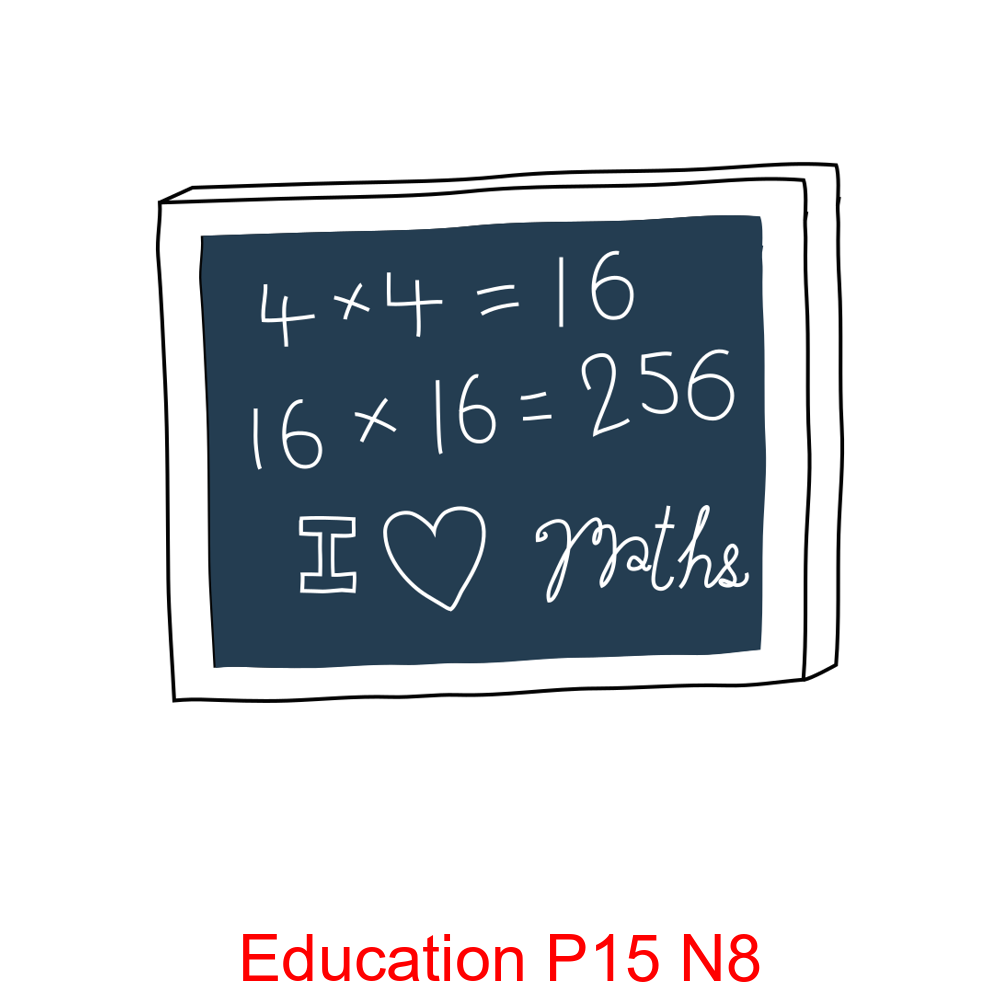 4 × 4 = 16
16 × 16 = 256
I ♡ Maths
Education P15 N8